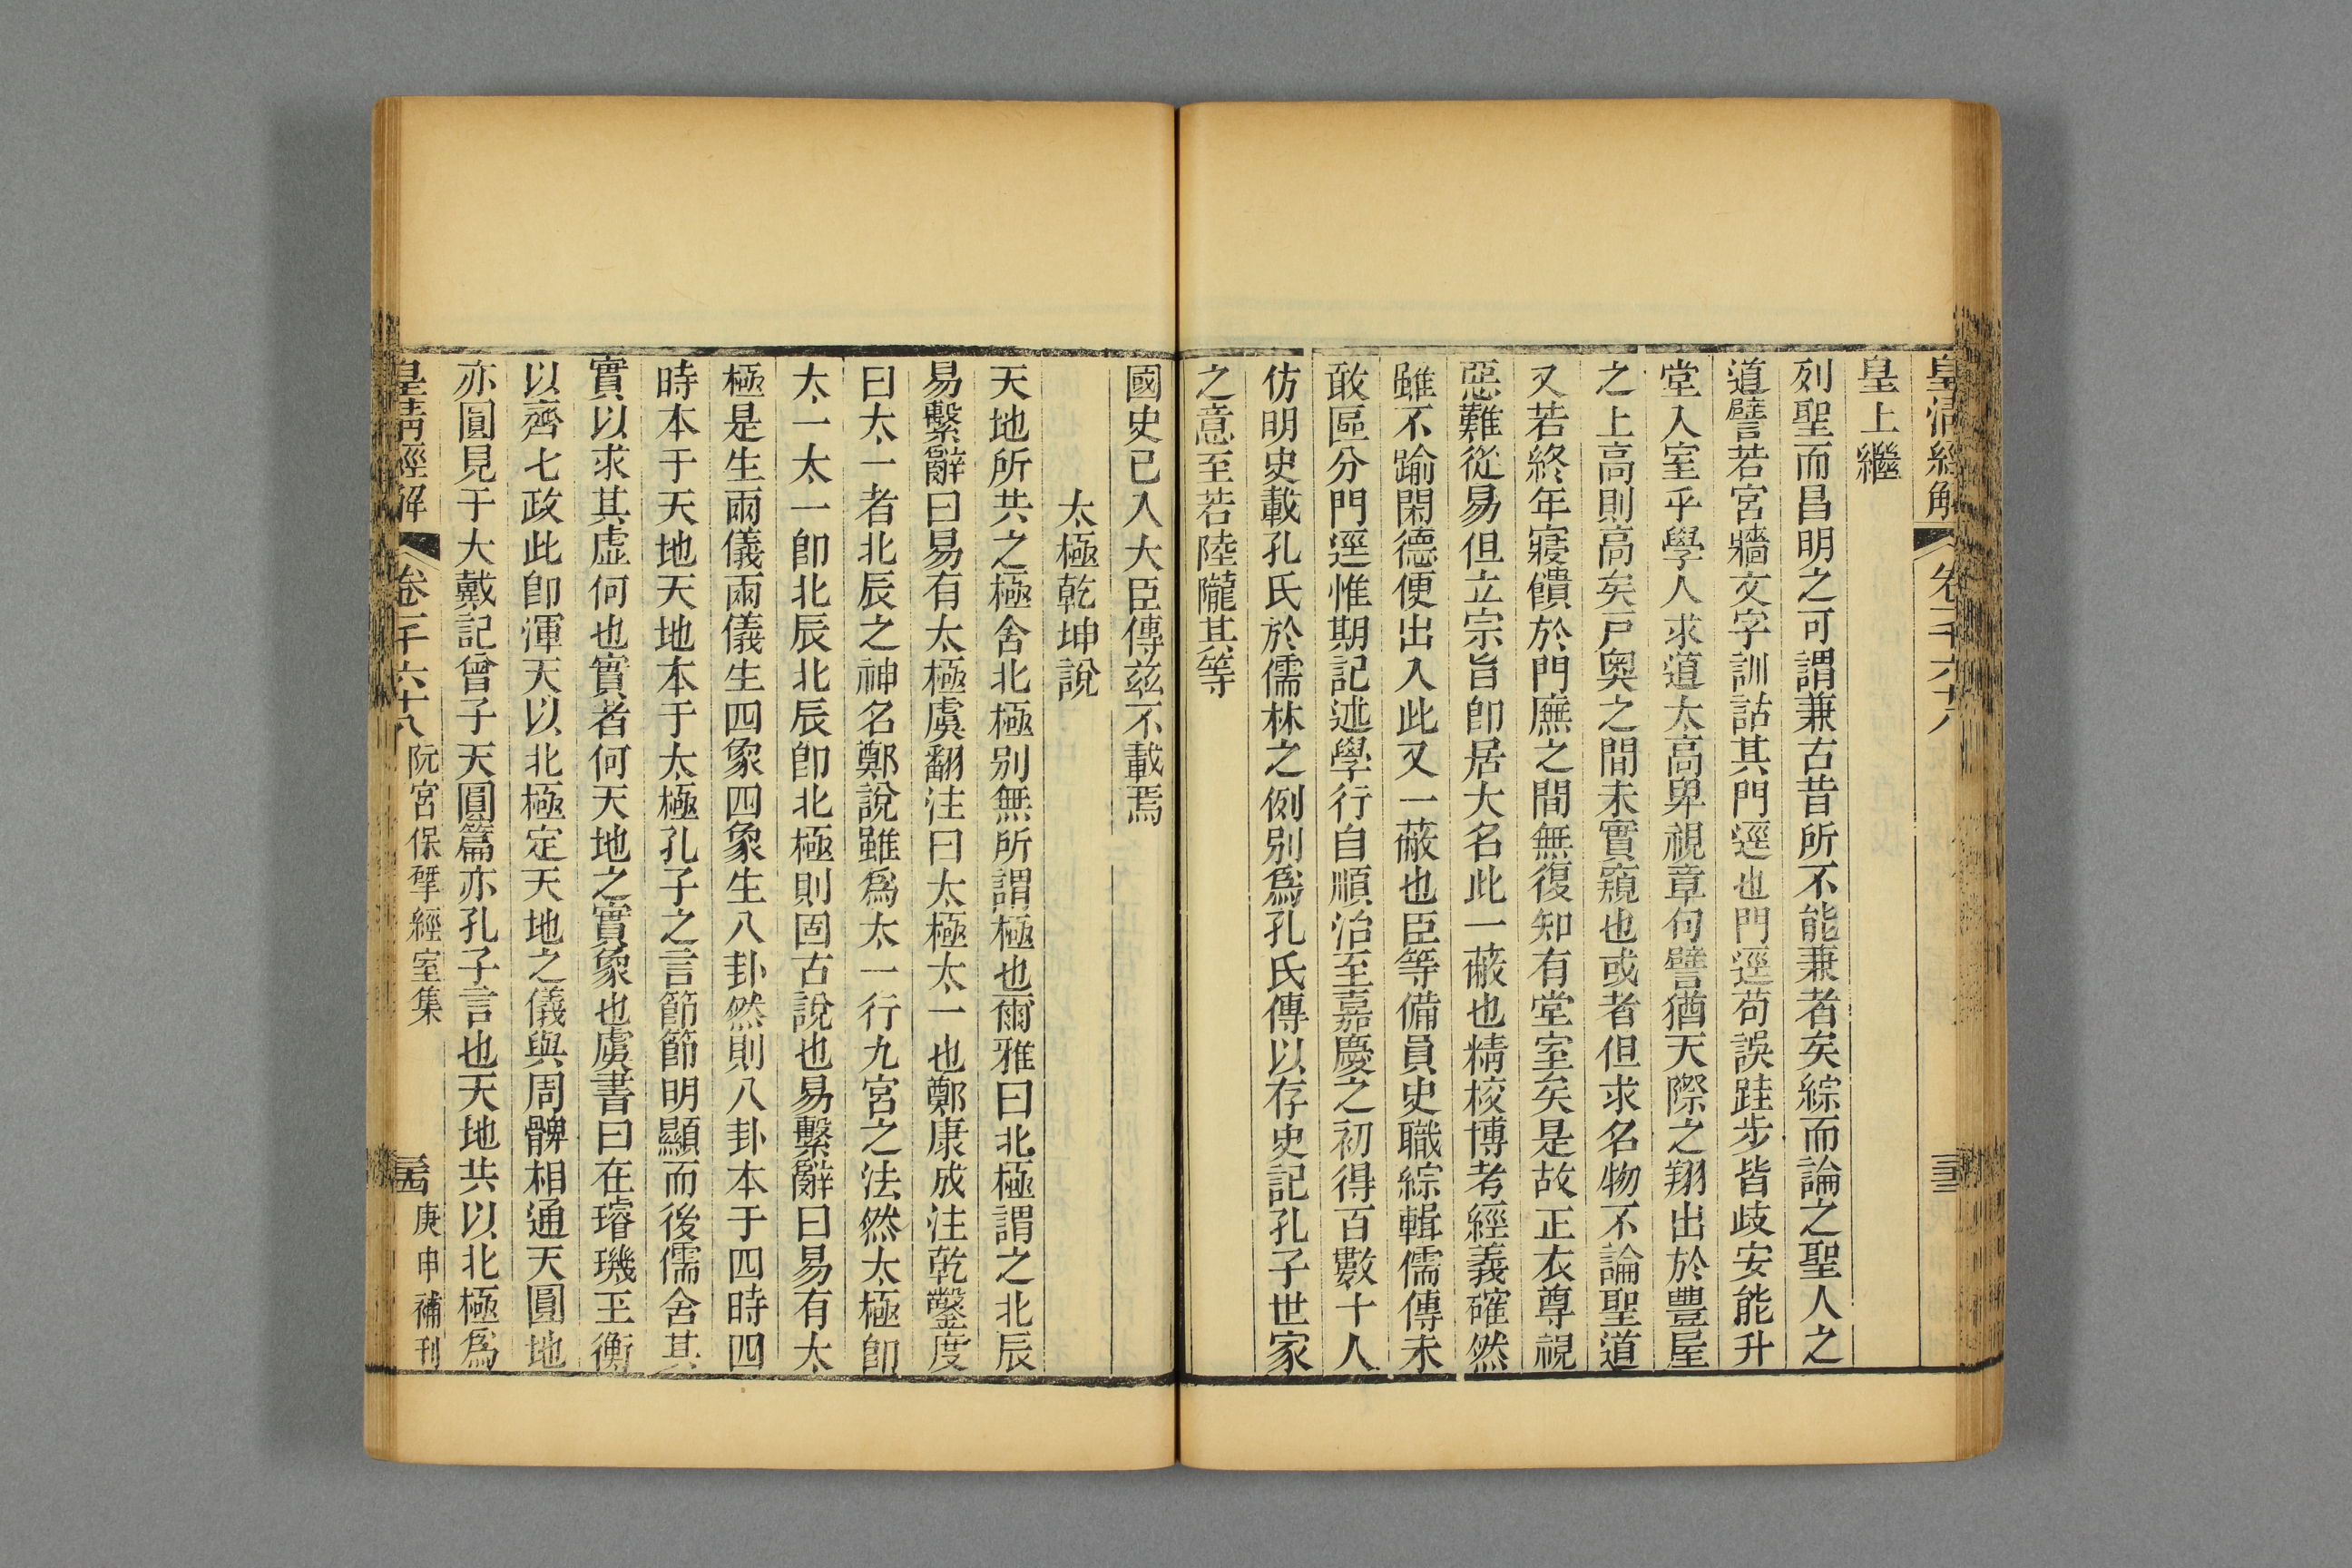 皇清經解
卷一千六十八
皇上繼
列聖而昌明之可謂兼古昔所不能兼者矣綜而論之聖人之
道譬若宮牆文字訓詁其門逕也門逕苟誤跬步皆歧安能升
堂入室乎學人求道太高卑視章句譬猶天際之翔出於豐屋
之上高則高矣戸奧之間未實窺也或者但求名物不論聖道
又若終年寢饋於門廡之間無復知有堂室矣是故正衣尊視
惡難從易但立宗旨卽居大名此一蔽也精校博考經義確然
雖不踰閑德便出入此又一蔽也臣等備員史職綜輯儒傳未
敢區分門逕惟期記述學行自順治至嘉慶之初得百數十人
仿明史載孔氏於儒林之例别爲孔氏傳以存史記孔子世家
之意至若陸隴其等
國史已入大臣傳茲不載焉
太極乾坤說
天地所共之極舍北極别無所謂極也爾雅曰北極謂之北辰
易繫辭曰易有太極虞翻注曰太極太一也鄭康成注乾鑿度
曰太一者北辰之神名鄭說雖爲太一行九宮之法然太極卽
太一太一卽北辰北辰卽北極則固古說也易繫辭曰易有太
極是生兩儀兩儀生四象四象生八卦然則八卦本于四時四
時本于天地天地本于太極孔子之言節節明顯而後儒舍其
實以求其虛何也實者何天地之實象也虞書曰在璿璣玉衡
以齊七政此卽渾天以北極定天地之儀與周髀相通天圓地
亦圓見于大戴記曾子天圓篇亦孔子言也天地共以北極爲
皇清經解
卷一千六十八
阮宮保揅經室集
庚申補刊